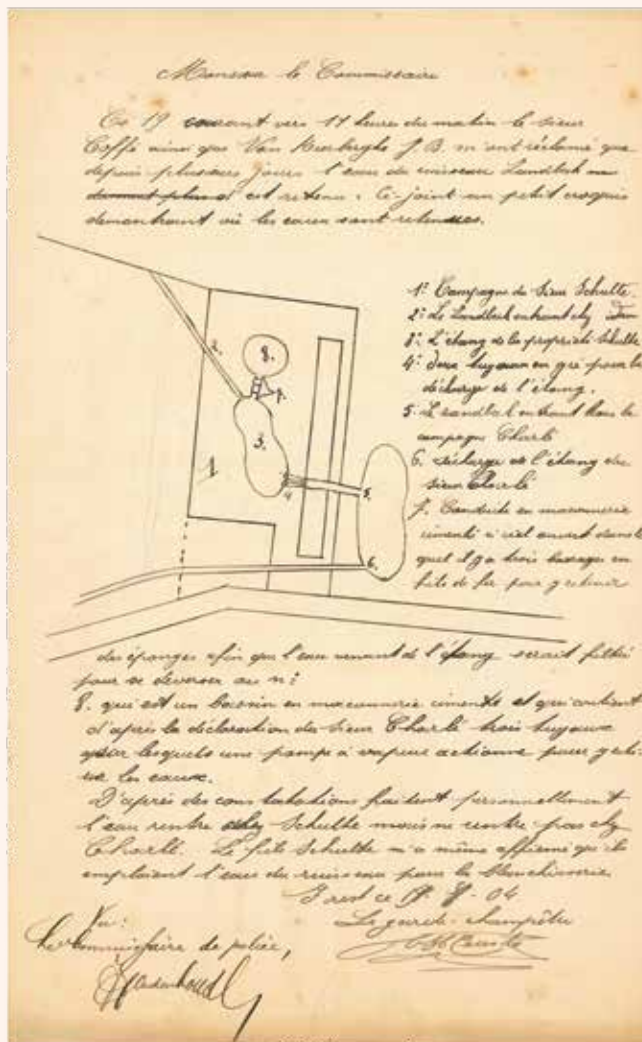 Monsieur le Commissaire
Ce 19 courant vers 11 heures du matin le sieur
Coffé ainsi que Van J.B. m'ont réclamé que
depuis plusieurs jours l'eau du ruisseau Landbeek
est retenu. Ci-joint un petit croquis
démontrant où les eaux sont retenues.
1: Campagne du Sieur Schulte.
2: Le Landbeek entrant chez
3: L'étang de la propriété Schulte
4: deux tuyaux en grè pour la
décharge de l'étang.
5. Le Landbeek entrant dans la
campagne Charlé
6. décharge de l'étang du
sieur Charlé
7. Conduite en maçonnerie
cimenté à ciel ouvert dans le
quel il y a trois barrages en
pour y retenir
2.
8.
7.
3.
1
4
5.
6.
des éponges afin que l'eau venant de l'étang serait filtré
pour se déverser au n:
8. qui est un bassin en maçonnerie cimenté et qui contient
d'après la déclaration du Sieur Charlé trois tuyaux
par lesquels une pompe à vapeur actionne pour
les eaux.
D'après des constatations personnellement
l'eau rentre chez Schulte mais ne rentre pas chez
Charlé. Le fils Schulte m'a même affirmé qu'ils
emploient l'eau du ruisseau pour la blanchisserie.
Forest ce - 04
Le garde-champêtre
Vu:
Le Commissaire de police,